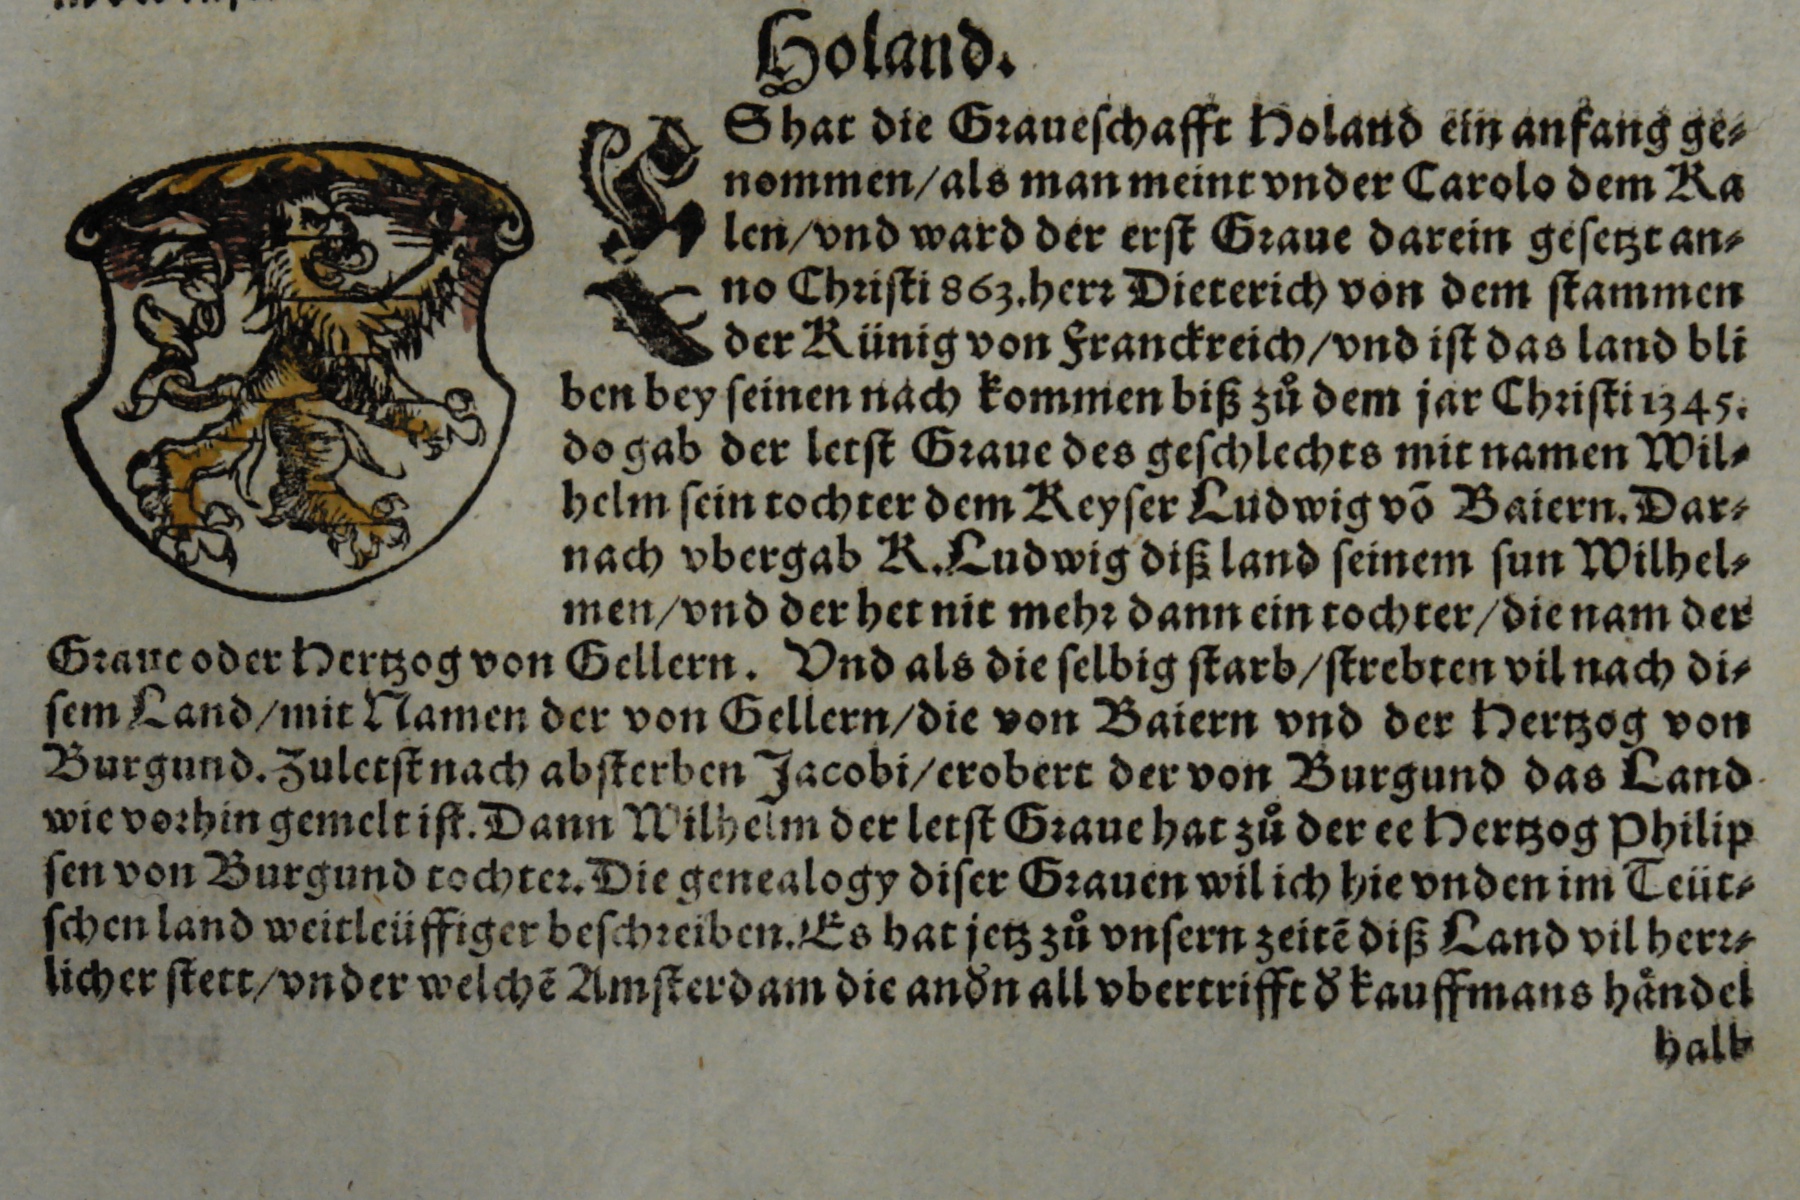 Holand.
ES hat die Graueschafft Holand ein anfang ge-
nommen/als man meint vnder Carolo dem Ka
len/vnd ward der erst Graue darein gesetzt an-
no Christi 863.herr Dieterich von dem stammen
der Künig von Franckreich/vnd ist das land bli
ben bey seinen nach kommen biß zů dem jar Christi 1345.
do gab der letst Graue des geschlechts mit namen Wil-
helm sein tochter dem Keyser Ludwig võ Baiern.Dar-
nach vbergab K.Ludwig diß land seinem sun Wilhel-
men/vnd der het nit mehr dann ein tochter/die nam der
Graue oder Hertzog von Gellern. Vnd als die selbig starb/strebten vil nach di-
sem Land/mit Namen der von Gellern/die von Baiern vnd der Hertzog von
Burgund.Zuletst nach absterben Jacobi/erobert der von Burgund das Land
wie vorhin gemelt ist.Dann Wilhelm der letst Graue hat zů der ee Hertzog Philip
sen von Burgund tochter.Die genealogy diser Grauen wil ich hie vnden im Teüt-
schen land weitleüffiger beschreiben.Es hat jetz zů vnsern zeitẽ diß Land vil herr-
licher stett/vnder welchẽ Amsterdam die andn̄ all vbertrifft d̄ kauffmans håndel
halb